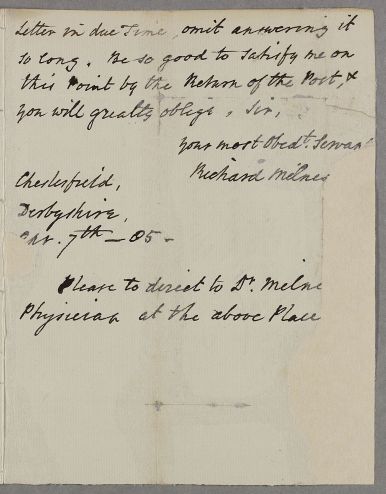 Letter in due Time, omit answering it
so long. Be so good to satisfy me on
this Point by the Return of the Post, &
you will greatly oblige, Sir,
your most Obedt. Servant
Richard Milnes
Chesterfield,
Derbyshire,
7th — 05 -
Please to direct to Dr. Milne
Physician at the above Place